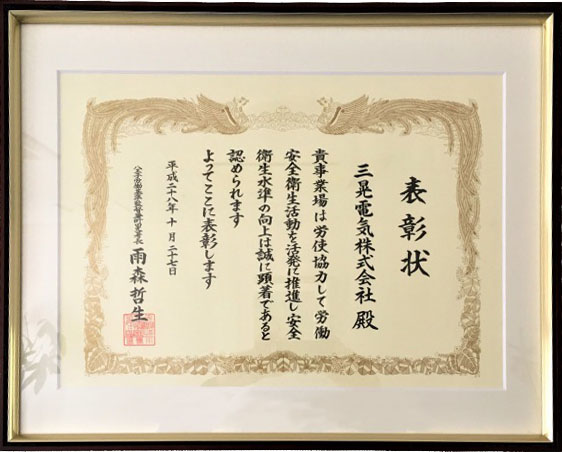 表彰状
三晃電気株式会社 殿
貴事業場は労使協力して労働
安全衛生活動を活発に推進し安全
衛生水準の向上は誠に顕著であると
認められます
よってここに表彰します
平成二十八年十月二十七日
八王子労働基準監督署町田支署長 雨森哲生